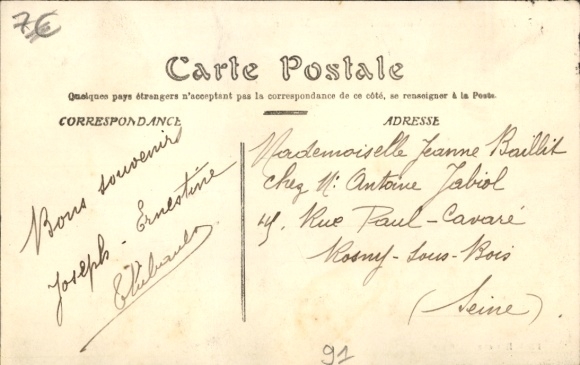 7€
Carte Postale
Quelques pays étrangers n'acceptant pas la correspondance de ce côté, se renseigner à la Poste.
CORRESPONDANCE
ADRESSE
Bons souvenirs
Joseph - Ernestine
Mademoiselle Jeanne Baillit
chez Mr Antoine Jabiol
45, Rue Paul-Cavaré
Rosny-sous-Bois
(Seine).
91